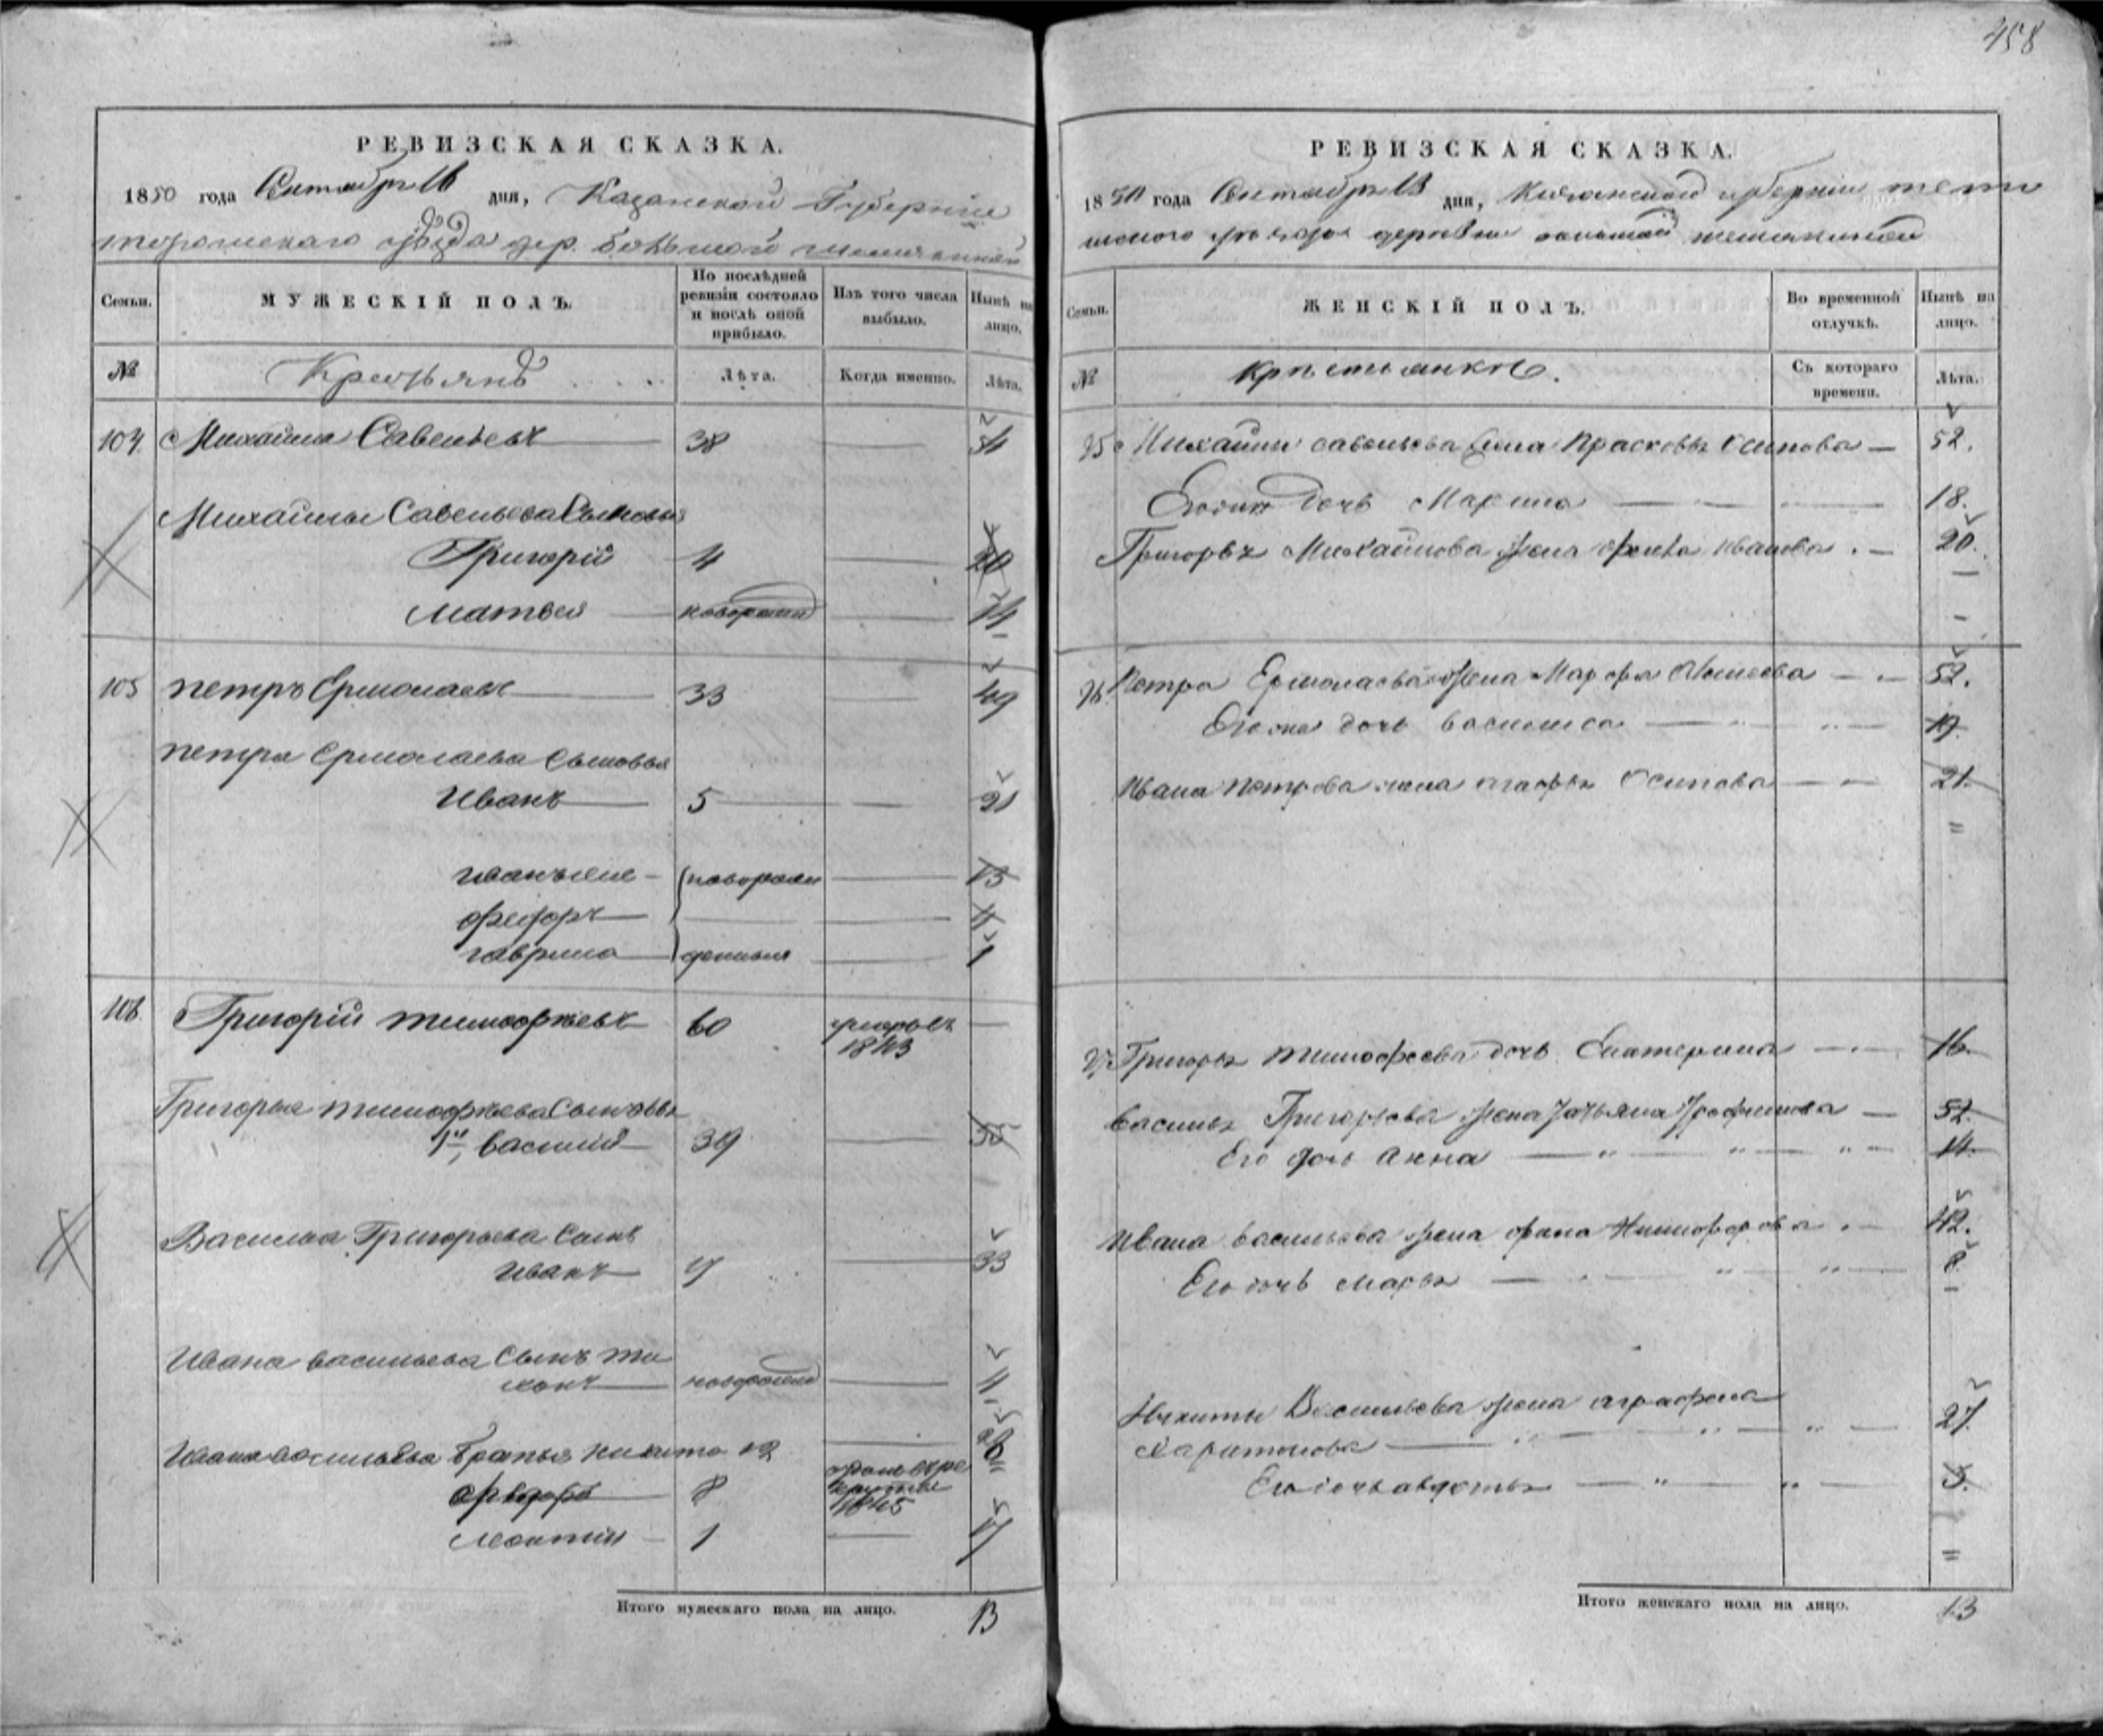 458
РЕВИЗСКАЯ СКАЗКА.
1850 года Сентября 16 дня, Казанской Губернии
уѣзда дер. Большой
Семьи.
МУЖЕСКІЙ ПОЛЪ.
По послѣдней ревизіи состояло и послѣ оной прибыло.
Изъ того числа выбыло.
Нынѣ на лицо.
№
Крестьянъ
Лѣта.
Когда именно.
Лѣта.
104 Михайла Савельевъ 38 54
Михайлы Савельева Сыновья
Григорій 4 20
Матвей новорожд 14
105 Петръ Ермолаевъ 33 49
Петра Ермолаева Сыновья
Иванъ 5 21
Иванъ же новорожден 13
Федоръ 11
Гаврила 1
106 Григорій Тимофѣевъ 60 1843
Григорья Тимофѣева Сыновья
1й Василий 39 55
Василья Григорьева Сынъ
Иванъ 17 33
Ивана Васильева Сынъ Ти
хонъ новорожд 11
Ивана Васильева Братья Никита 12 28
8 1845
Леонтий 1 17
Итого мужескаго пола на лицо. 13
РЕВИЗСКАЯ СКАЗКА.
1850 года Сентября дня, Казанской губернии тети
шскаго уѣзда деревни большой
Семьи.
ЖЕНСКІЙ ПОЛЪ.
Во временной отлучкѣ.
Нынѣ на лицо.
№
Крестьянокъ.
Съ котораго времени.
Лѣта.
Михайлы Савельева жена Прасковья Осипова 52.
Его же дочь Марина 18.
Григорья Михайлова жена Фекла Иванова 20.
Петра Ермолаева жена Марфа 52.
Его же дочь Василиса 19
Ивана Петрова жена Осипова 21.
Григорья Тимофеева дочь Екатерина 16.
Василья Григорьева жена Татьяна Трофимова 52.
Его дочь Анна 14.
Ивана Васильева жена Никифорова 42.
Его дочь Марья 8.
Никиты Васильева жена Аграфена
Харитонова 27.
Его дочь Авдотья 5.
Итого женскаго пола на лицо. 13